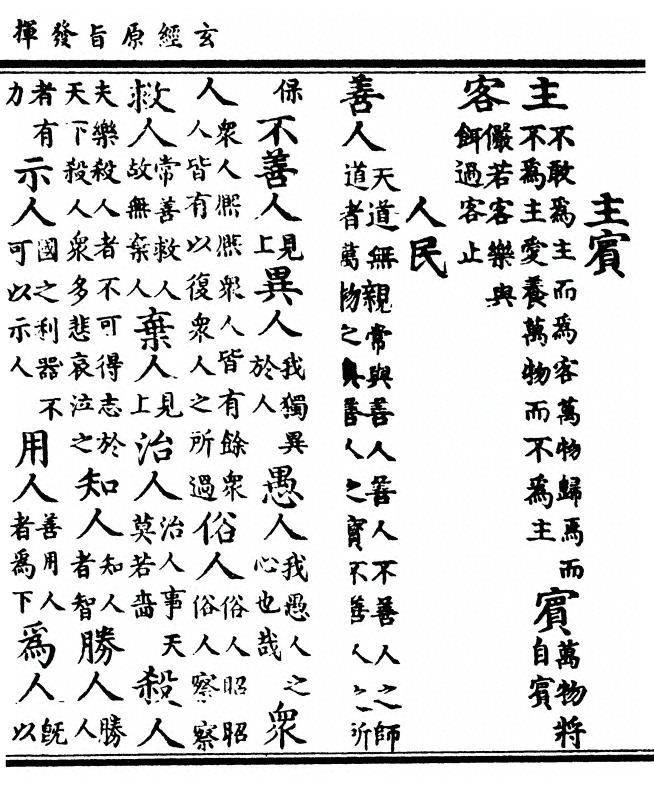 玄經原旨發揮
主賓
主不敢爲主而爲客萬物歸焉而不爲主愛養萬物而不爲主賓萬物將自賓
客儼若客樂與餌過客止
人民
善人天道無親常與善人善人不善人之師道者萬物之奧善人之寶不善人之所
保不善人見上異人我獨異於人愚人我愚人之心也哉衆
人衆人熙熙衆人皆有餘衆人皆有以復衆人之所過俗人俗人昭昭俗人察察
救人常善救人故無棄人棄人見上治人治人事天莫若嗇殺人
夫樂殺人者不可得志於天下殺人衆多悲哀泣之知人知人者智勝人勝人
者有力示人國之利器不可以示人用人善用人者爲下爲人旣以